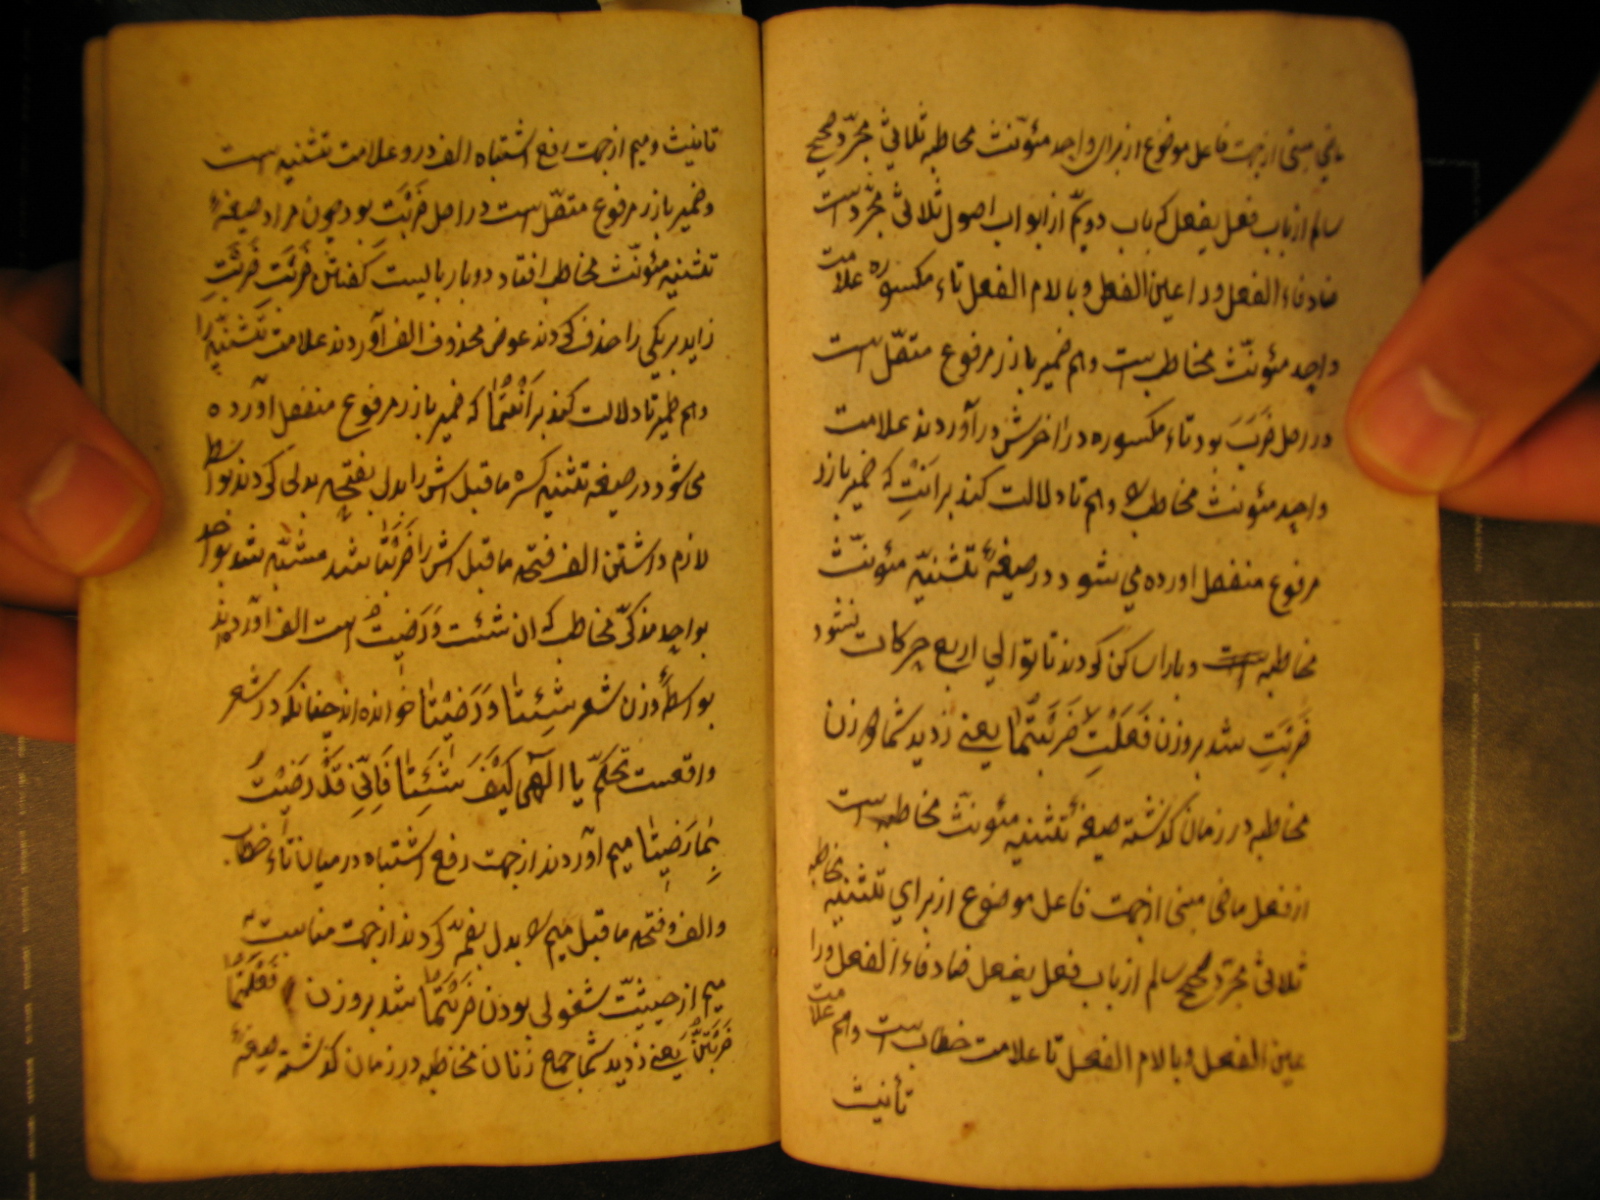 ماضی مبنی از جهت فاعل موضوع از برای واحد مؤنث مخاطبه ثلاثی مجرد صحیح
سالم از باب فعل یفعل که باب دویم از ابواب اصول ثلاثی مجرد است
ضاد فاء الفعل و را عین الفعل و با لام الفعل تاء مکسوره علامت
واحد مؤنث مخاطب است و هم ضمیر بارز مرفوع متصل است
در اصل ضَرَبَ بود تاء مکسوره در اخرش در آوردند علامت
واحد مؤنث مخاطب و هم تا دلالت کند بر اَنْتِ که ضمیر بارز
مرفوع منفصل اورده می شود در صیغهٔ تثنیه مؤنث
مخاطبه است و با را ساکن کردند تا توالی اربع حرکات نشود
ضَرَبْتِ شد بر وزن فَعَلْتِ ضَرَبْتُمٰا یعنی زدید شما دو زن
مخاطبه در زمان گذشته صیغهٔ تثنیه مؤنث مخاطبه است
از فعل ماضی مبنی از جهت فاعل موضوع از برای تثنیه مخاطبه
ثلاثی مجرد صحیح سالم از باب فعل یفعل ضاد فاء الفعل و را
عین الفعل و با لام الفعل تا علامت خطاب است و هم علامت
تأنیث
تانیث و میم از جهت رفع اشتباه الف در و علامت تثنیه است
و ضمیر بارز مرفوع متصل است در اصل ضَرَبْتِ بود چون مراد صیغهٔ
تثنیه مؤنث مخاطب افتاد دو بار بایست گفتاش ضَرَبْتِ ضَرَبْتِ
زاید بر یکی را حذف کردند عوض محذوف الف آوردند علامت تثنیه را
و هم ضمیر تا دلالت کند بر اَنْتُمٰا که ضمیر بارز مرفوع منفصل آورده
می شود در صیغه تثنیه کسره ما قبل اش را بدل بفتحه بدل کردند بواسطه
لازم داشتن الف فتحه ما قبل اش را ضَرَبْتٰا شد مشتبه شد بواحد
بواحد مذکر مخاطب که ان شئت وَرَضِیتَ است الف آوردند
بواسطهٔ وزن شعر شِئْتٰا وَرَضِیْتٰا خوانده اند چنانکه در شعر
واقعست تحکّم یا الٓهی کَیْفَ شِئْتٰا فَاِنّی قَدْ رَضِیْتُ
بِمٰا رَضِیتٰا میم آوردند از جهت رفع اشتباه در میان تاء خطاب
و الف و فتحه ما قبل میم بدل بضمه کردند از جهت مناسبت
میم از حیثیت شفوی بودن ضَرَبْتُمٰا شد بر وزن فَعَلْتُمٰا
ضَرَبْتُنَّ یعنی زدید شما جمع زنان مخاطبه در زمان گذشته صیغهٔ